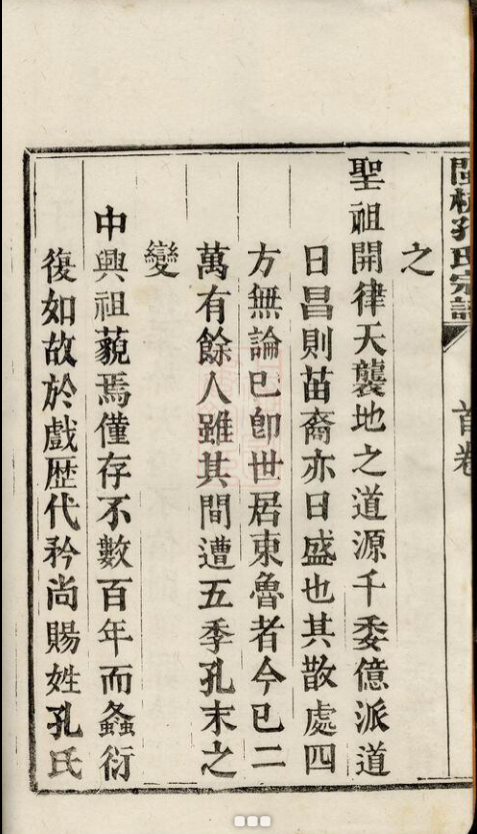 孔氏宗譜
首卷
之
聖祖開律天襲地之道源千委億派道
日昌則苗裔亦日盛也其散處四
方無論已卽世居東魯者今已二
萬有餘人雖其間遭五季孔末之
變
中興祖藐焉僅存不數百年而螽衍
復如故於戲歷代矜尚賜姓孔氏